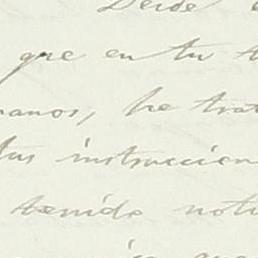 Desde
que en tu
manos, he trat
tus instruccion
tenido noti